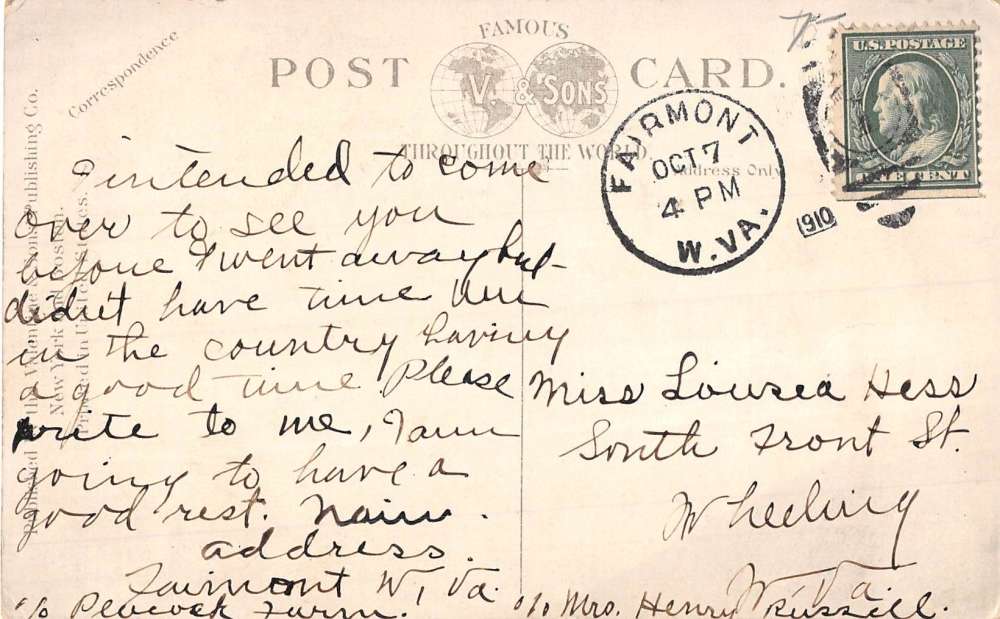 Correspondence
FAMOUS
POST CARD.
V. & SONS
THROUGHOUT THE WORLD.
Address Only
U.S. POSTAGE
ONE CENT
FAIRMONT
OCT 7
4 PM
W. VA.
1910
Published by the Valentine & Sons Publishing Co.
New York and Boston.
Printed in United States.
I intended to come
over to see you
before I went away but
didn't have time
in the country having
a good time Please
write to me, I am
going to have a
good rest.
address.
Fairmont W. Va.
c/o Peacock Farm.
Miss Lousea Hess
South Front St.
Wheeling
W. Va.
c/o Mrs. Henry Russell.